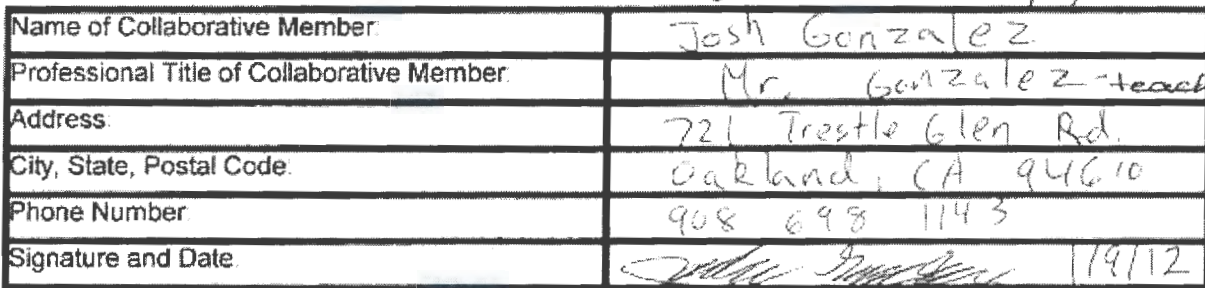 Name of Collaborative Member: Josh Gonzalez
Professional Title of Collaborative Member: Mr. Gonzalez - teach
Address: 721 Trestle Glen Rd.
City, State, Postal Code: Oakland, CA 94610
Phone Number 908 698 1143
Signature and Date 1/9/12